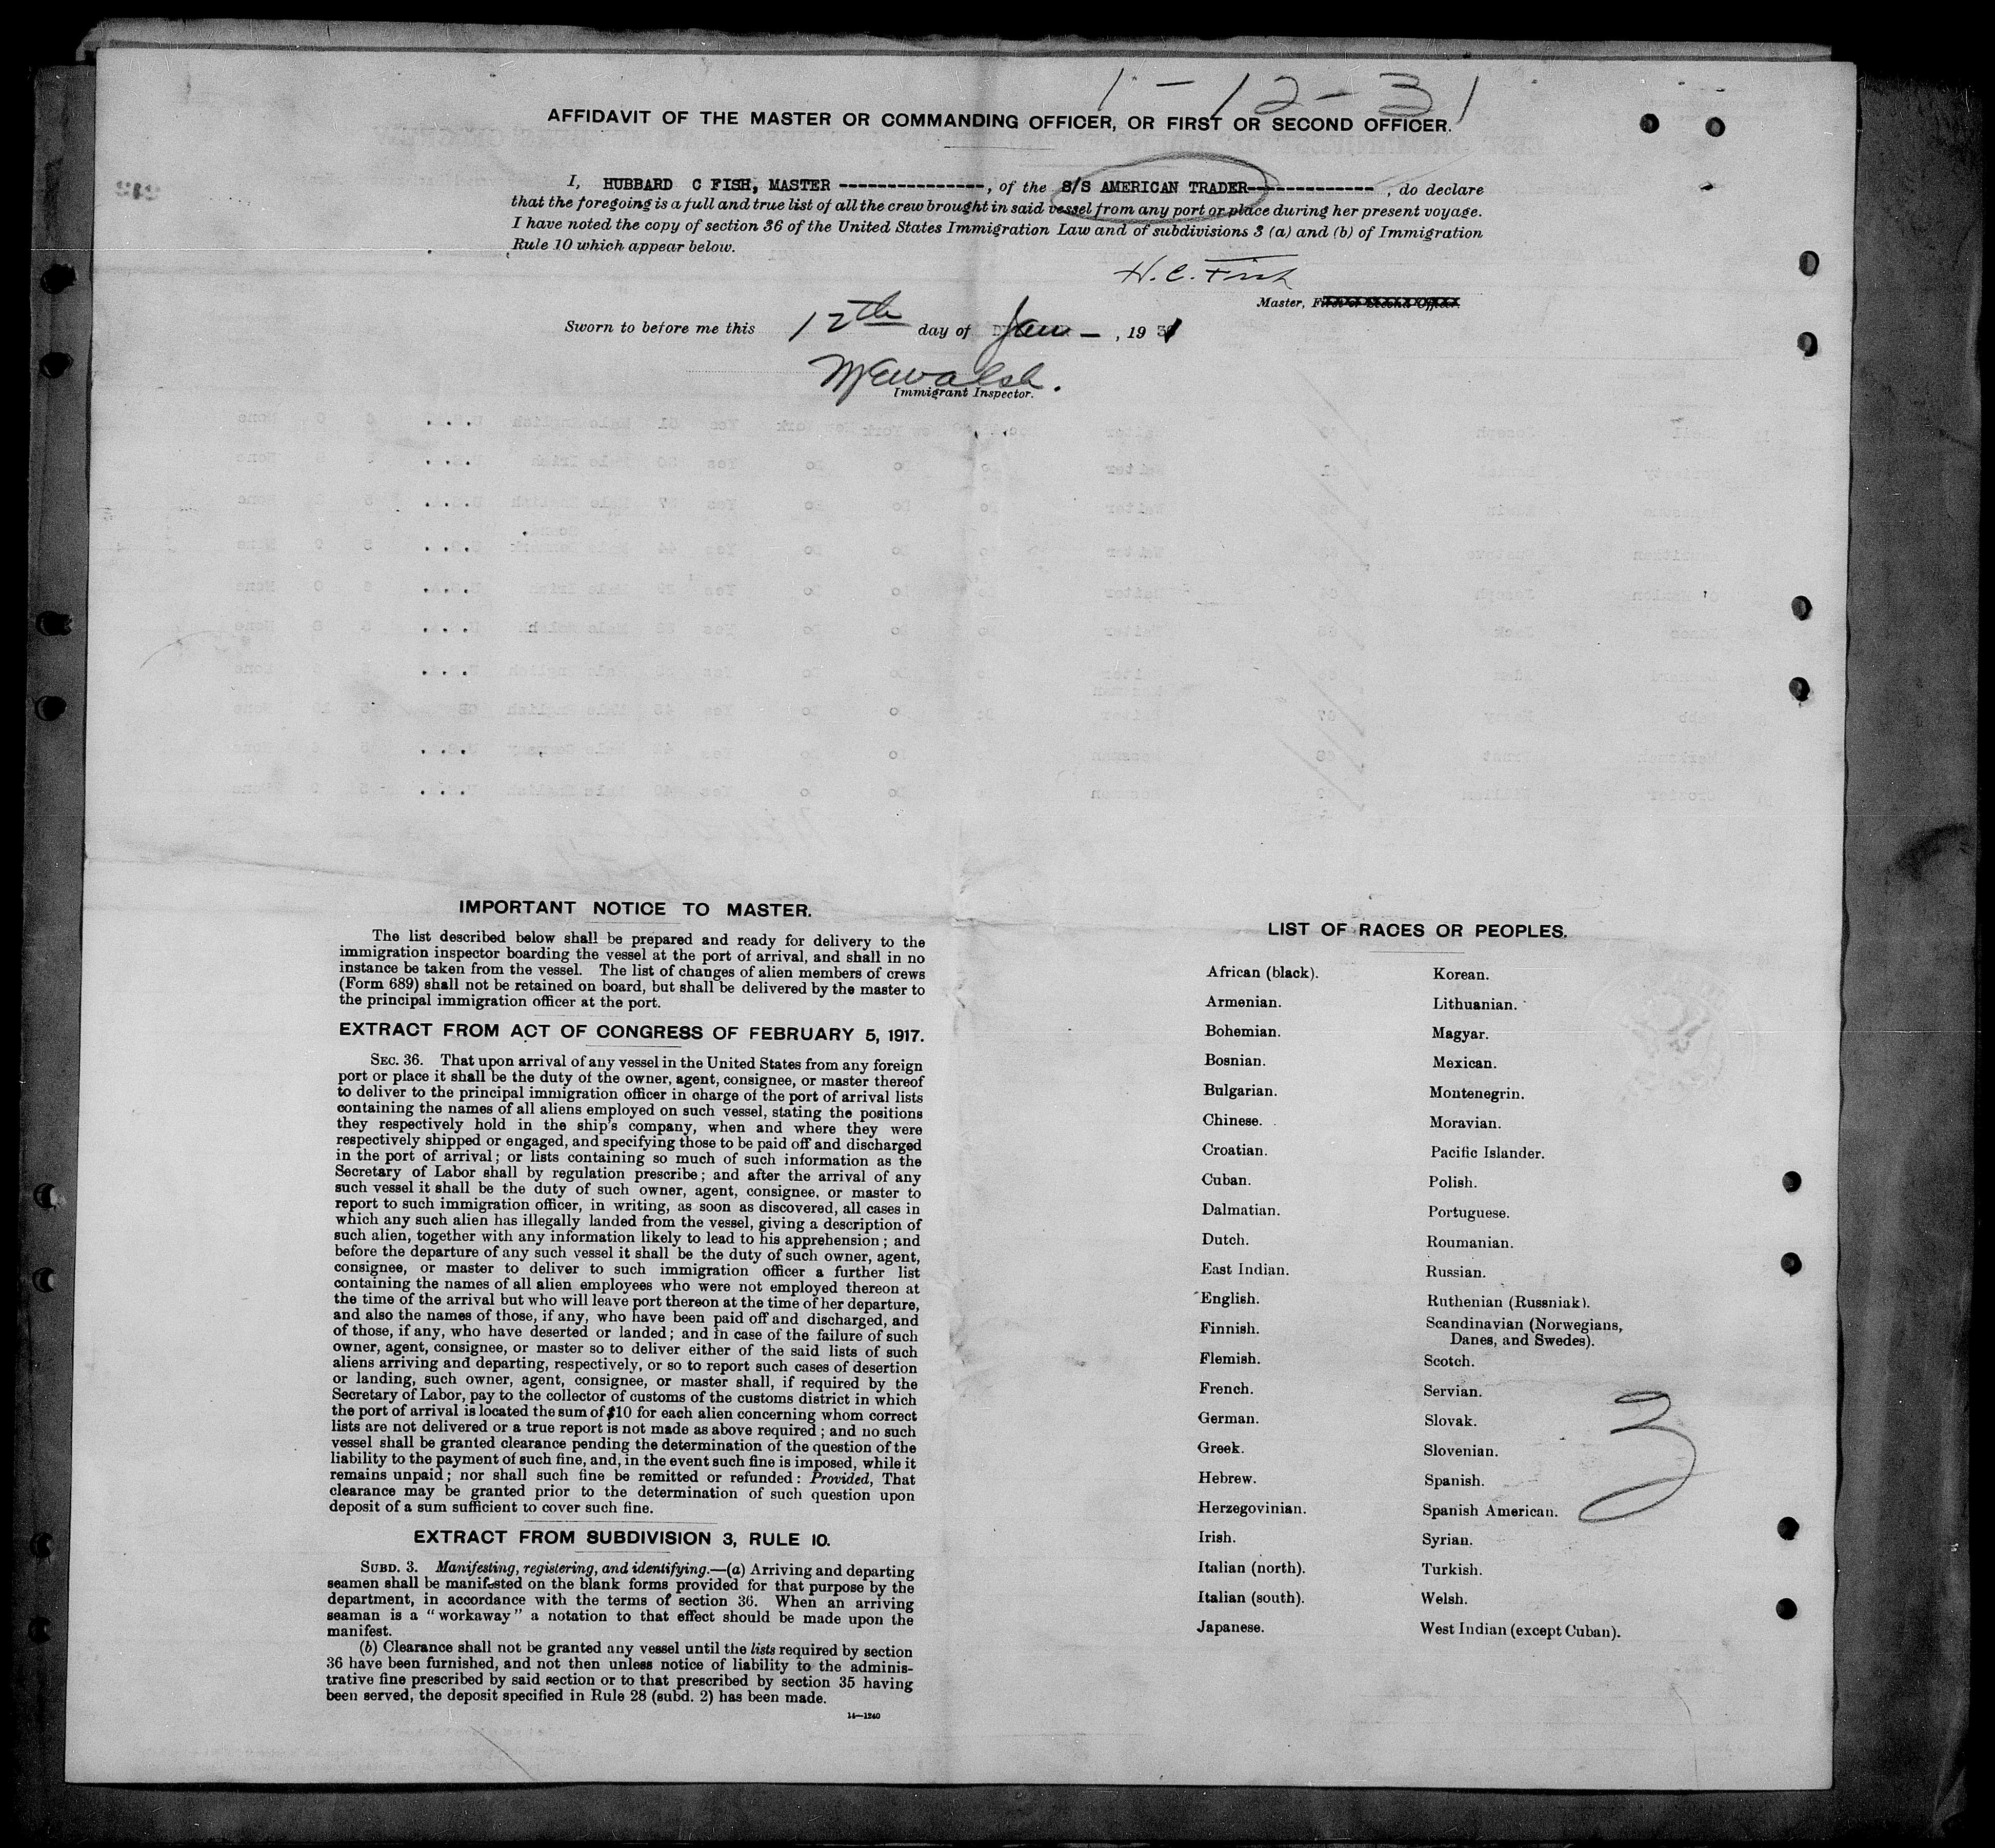 1-12-31
AFFIDAVIT OF THE MASTER OR COMMANDING OFFICER, OR FIRST OR SECOND OFFICER.
I, HUBBARD C FISH, MASTER ---------------, of the S/S AMERICAN TRADER-------------, do declare
that the foregoing is a full and true list of all the crew brought in said vessel from any port or place during her present voyage.
I have noted the copy of section 36 of the United States Immigration Law and of subdivisions 3 (a) and (b) of Immigration
Rule 10 which appear below.
H. C. Fish
Master, First or Second Officer.
Sworn to before me this 12th day of Jan -, 19 31
Immigrant Inspector.
IMPORTANT NOTICE TO MASTER.
The list described below shall be prepared and ready for delivery to the
immigration inspector boarding the vessel at the port of arrival, and shall in no
instance be taken from the vessel. The list of changes of alien members of crews
(Form 689) shall not be retained on board, but shall be delivered by the master to
the principal immigration officer at the port.
EXTRACT FROM ACT OF CONGRESS OF FEBRUARY 5, 1917.
SEC. 36. That upon arrival of any vessel in the United States from any foreign
port or place it shall be the duty of the owner, agent, consignee, or master thereof
to deliver to the principal immigration officer in charge of the port of arrival lists
containing the names of all aliens employed on such vessel, stating the positions
they respectively hold in the ship's company, when and where they were
respectively shipped or engaged, and specifying those to be paid off and discharged
in the port of arrival; or lists containing so much of such information as the
Secretary of Labor shall by regulation prescribe; and after the arrival of any
such vessel it shall be the duty of such owner, agent, consignee, or master to
report to such immigration officer, in writing, as soon as discovered, all cases in
which any such alien has illegally landed from the vessel, giving a description of
such alien, together with any information likely to lead to his apprehension; and
before the departure of any such vessel it shall be the duty of such owner, agent,
consignee, or master to deliver to such immigration officer a further list
containing the names of all alien employees who were not employed thereon at
the time of the arrival but who will leave port thereon at the time of her departure,
and also the names of those, if any, who have been paid off and discharged, and
of those, if any, who have deserted or landed; and in case of the failure of such
owner, agent, consignee, or master so to deliver either of the said lists of such
aliens arriving and departing, respectively, or so to report such cases of desertion
or landing, such owner, agent, consignee, or master shall, if required by the
Secretary of Labor, pay to the collector of customs of the customs district in which
the port of arrival is located the sum of $10 for each alien concerning whom correct
lists are not delivered or a true report is not made as above required; and no such
vessel shall be granted clearance pending the determination of the question of the
liability to the payment of such fine, and, in the event such fine is imposed, while it
remains unpaid; nor shall such fine be remitted or refunded: Provided, That
clearance may be granted prior to the determination of such question upon
deposit of a sum sufficient to cover such fine.
EXTRACT FROM SUBDIVISION 3, RULE 10.
SUBD. 3. Manifesting, registering, and identifying.—(a) Arriving and departing
seamen shall be manifested on the blank forms provided for that purpose by the
department, in accordance with the terms of section 36. When an arriving
seaman is a "workaway" a notation to that effect should be made upon the
manifest.
(b) Clearance shall not be granted any vessel until the lists required by section
36 have been furnished, and not then unless notice of liability to the adminis-
trative fine prescribed by said section or to that prescribed by section 35 having
been served, the deposit specified in Rule 28 (subd. 2) has been made.
14—1240
LIST OF RACES OR PEOPLES.
African (black).
Armenian.
Bohemian.
Bosnian.
Bulgarian.
Chinese.
Croatian.
Cuban.
Dalmatian.
Dutch.
East Indian.
English.
Finnish.
Flemish.
French.
German.
Greek.
Hebrew.
Herzegovinian.
Irish.
Italian (north).
Italian (south).
Japanese.
Korean.
Lithuanian.
Magyar.
Mexican.
Montenegrin.
Moravian.
Pacific Islander.
Polish.
Portuguese.
Roumanian.
Russian.
Ruthenian (Russniak).
Scandinavian (Norwegians,
Danes, and Swedes).
Scotch.
Servian.
Slovak.
Slovenian.
Spanish.
Spanish American.
Syrian.
Turkish.
Welsh.
West Indian (except Cuban).
3